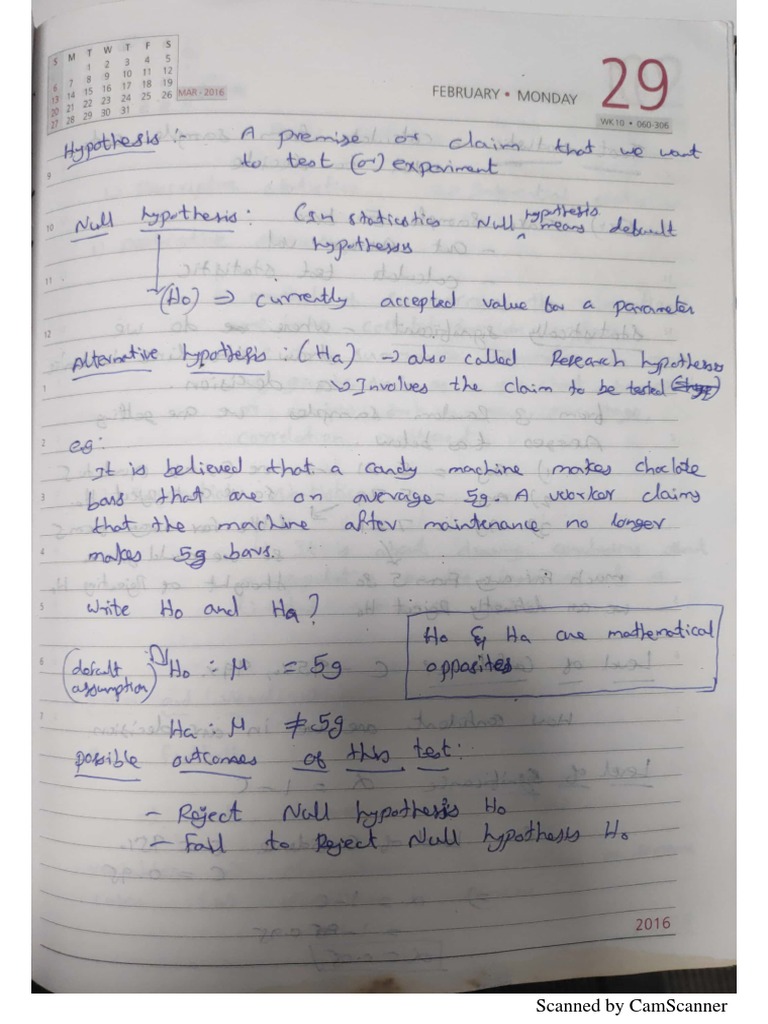 S M T W T F S
1 2 3 4 5
6 7 8 9 10 11 12
13 14 15 16 17 18 19
20 21 22 23 24 25 26
27 28 29 30 31
MAR - 2016
FEBRUARY • MONDAY
29
WK 10 • 060-306
Hypothesis :- A premise or claim that we want
9
to test (or) experiment
10 Null hypothesis : (In statistics Null hypothesis means default
hypothesis
11
(H0) ⇒ currently accepted value for a parameter
12
Alternative hypothesis : (Ha) → also called Research hypothesis
1
↘ Involves the claim to be tested
2 eg:
It is believed that a candy machine makes choclate
3 bars that are on average 5g. A worker claims
that the machine after maintenance no longer
4 makes 5g bars.
5 write H0 and Ha?
H0 & Ha are mathematical
opposites
6 (default assumption) H0 : μ = 5g
7 Ha : μ ≠ 5g
possible outcomes of this test:
- Reject Null hypothesis H0
- Fail to Reject Null hypothesis H0
2016
Scanned by CamScanner